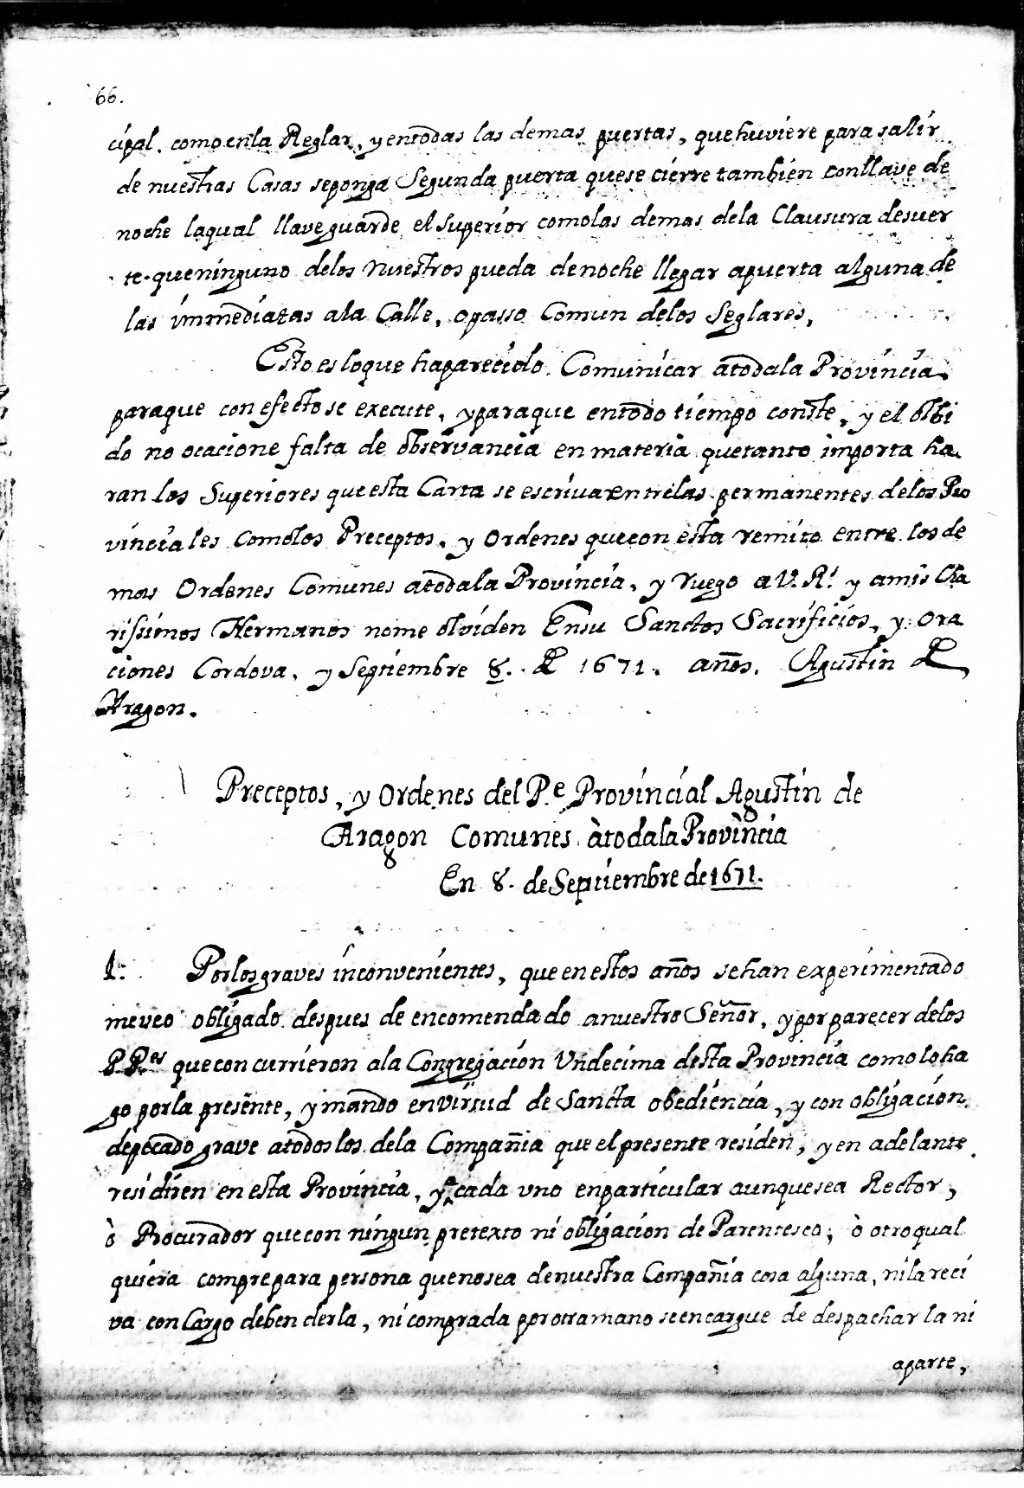 66.
cipal. como en la Reglar, y en todas las demas puertas, que huviere para salir
de nuestras Casas se ponga Segunda puerta que se cierre tambien con llave de
noche la qual llave guarde el Superior como las demas de la Clausura de suer
te que ninguno de los Nuestros pueda de noche llegar a puerta alguna de
las immediatas a la Calle, o passo Comun de los Seglares,
Esto es lo que ha parecido. Comunicar a toda la Provincia.
para que con efecto se execute, y para que en todo tiempo conste, y el olbi
do no ocacione falta de observancia en materia que tanto importa ha
ran los Superiores que esta Carta se escriva entre las permanentes de los Pro
vinciales como los Preceptos. y Ordenes que con esta remito entre los de
mas Ordenes Comunes a toda la Provincia, y ruego a V. R.ª y a mis Cha
rissimos Hermanos no me olviden En su Sanctos Sacrificios, y Ora
ciones Cordova, y Septiembre 8. de 1671. años. Agustin de
Aragon.
Preceptos, y Ordenes del P.e Provincial Agustin de
Aragon Comunes à toda la Provincia
En 8. de Septiembre de 1671.
1. Por los graves inconvenientes, que en estos años se han experimentado
me veo obligado despues de encomendado a nuestro Señor, y por parecer de los
P.P.es que concurrieron a la Congregacion Undecima desta Provincia como lo ha
go por la presente, y mando en virtud de Sancta obediencia, y con obligacion
de pecado grave a todos los de la Compañia que el presente residen, y en adelante
residiren en esta Provincia, y a cada uno en particular aunque sea Rector,
ò Procurador que con ningun pretexto ni obligacion de Parentesco, ò otro qual
quiera compre para persona que no sea de nuestra Compañia cosa alguna, ni la reci
va con Cargo de benderla, ni comprada por otra mano se encargue de despacharla ni
aparte,